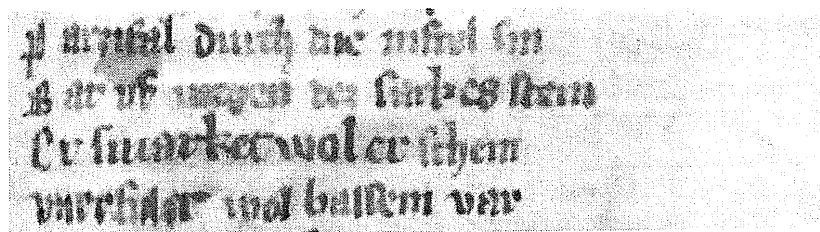 P arzifal durch die niftel sin
B at vf wegen des sark es stein
Er smacket wol er schein
vnerfulet wol balsem var